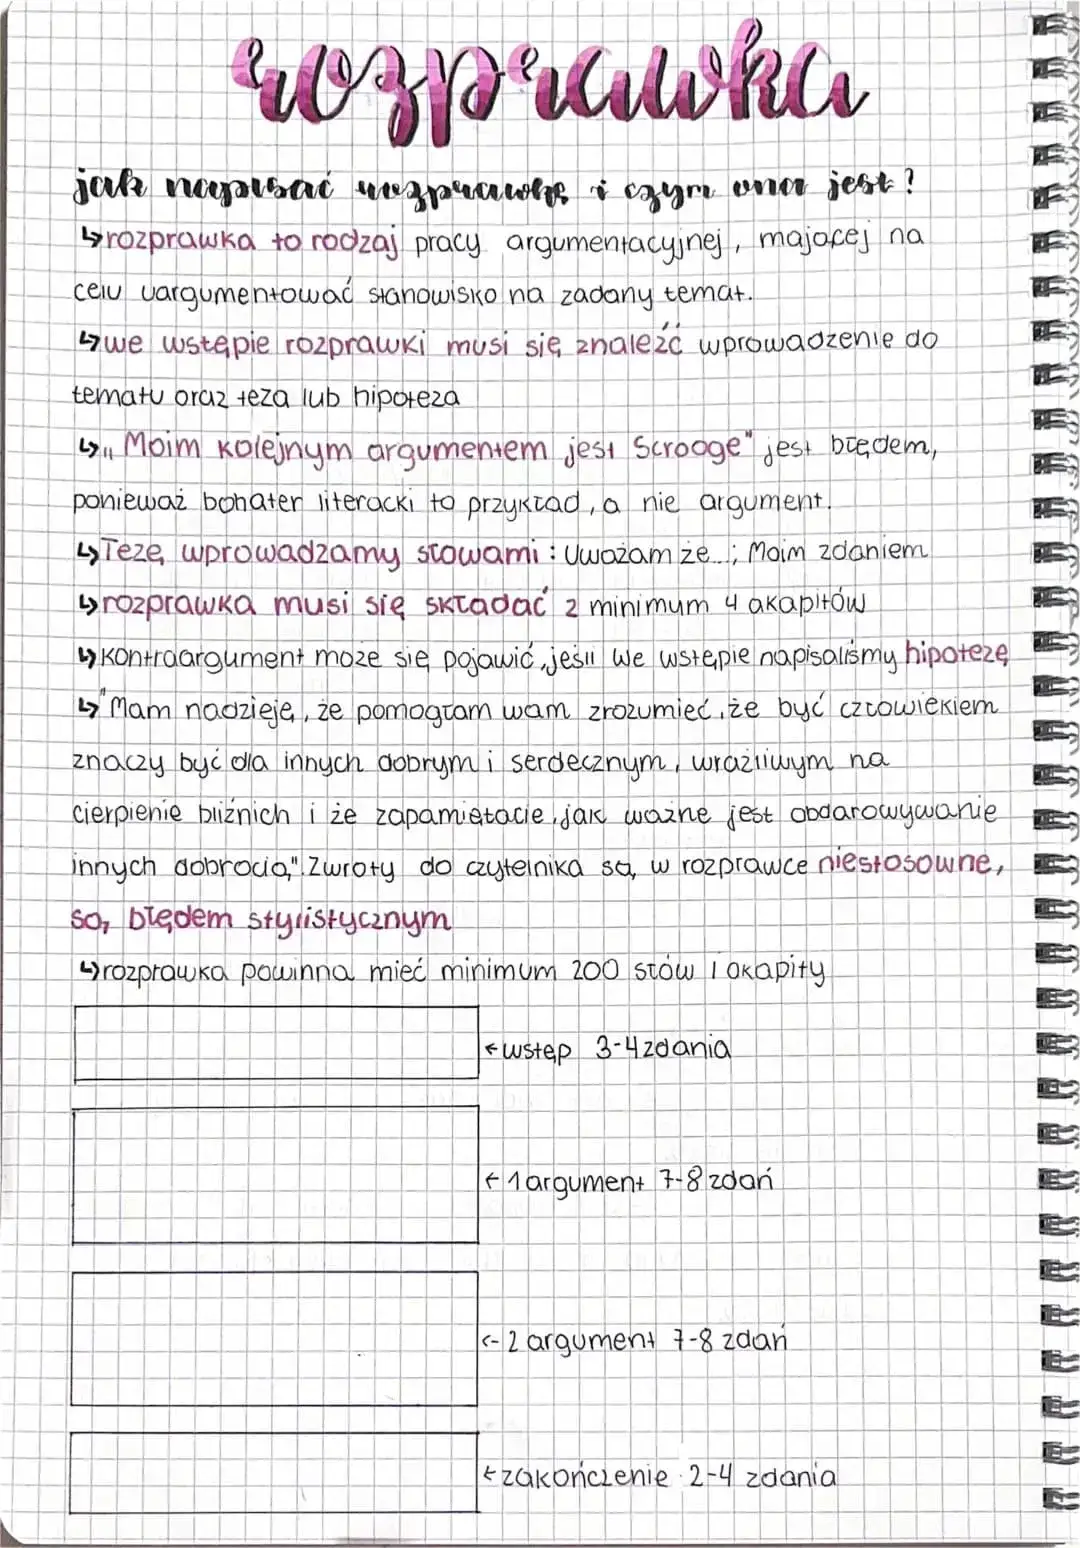 rozprawka
jak napisać rozprawkę i czym ona jest?
↳rozprawka to rodzaj pracy argumentacyjnej, mającej na
celu uargumentować stanowisko na zadany temat.
↳we wstępie rozprawki musi się znaleźć wprowadzenie do
tematu oraz teza lub hipoteza
↳„Moim kolejnym argumentem jest Scrooge" jest błędem,
ponieważ bohater literacki to przykład, a nie argument.
↳Tezę wprowadzamy słowami: Uważam że...; Moim zdaniem
↳rozprawka musi się składać z minimum 4 akapitów
↳kontraargument może się pojawić, jeśli we wstępie napisaliśmy hipotezę
↳"Mam nadzieję, że pomogłam wam zrozumieć, że być człowiekiem
znaczy być dla innych dobrym i serdecznym, wrażliwym na
cierpienie bliźnich i że zapamiętacie, jak ważne jest obdarowywanie
innych dobrocią". Zwroty do czytelnika są w rozprawce niestosowne,
są błędem stylistycznym
↳rozprawka powinna mieć minimum 200 słów i akapity
←wstęp 3-4 zdania
←1 argument 7-8 zdań
<-2 argument 7-8 zdań
←zakończenie 2-4 zdania